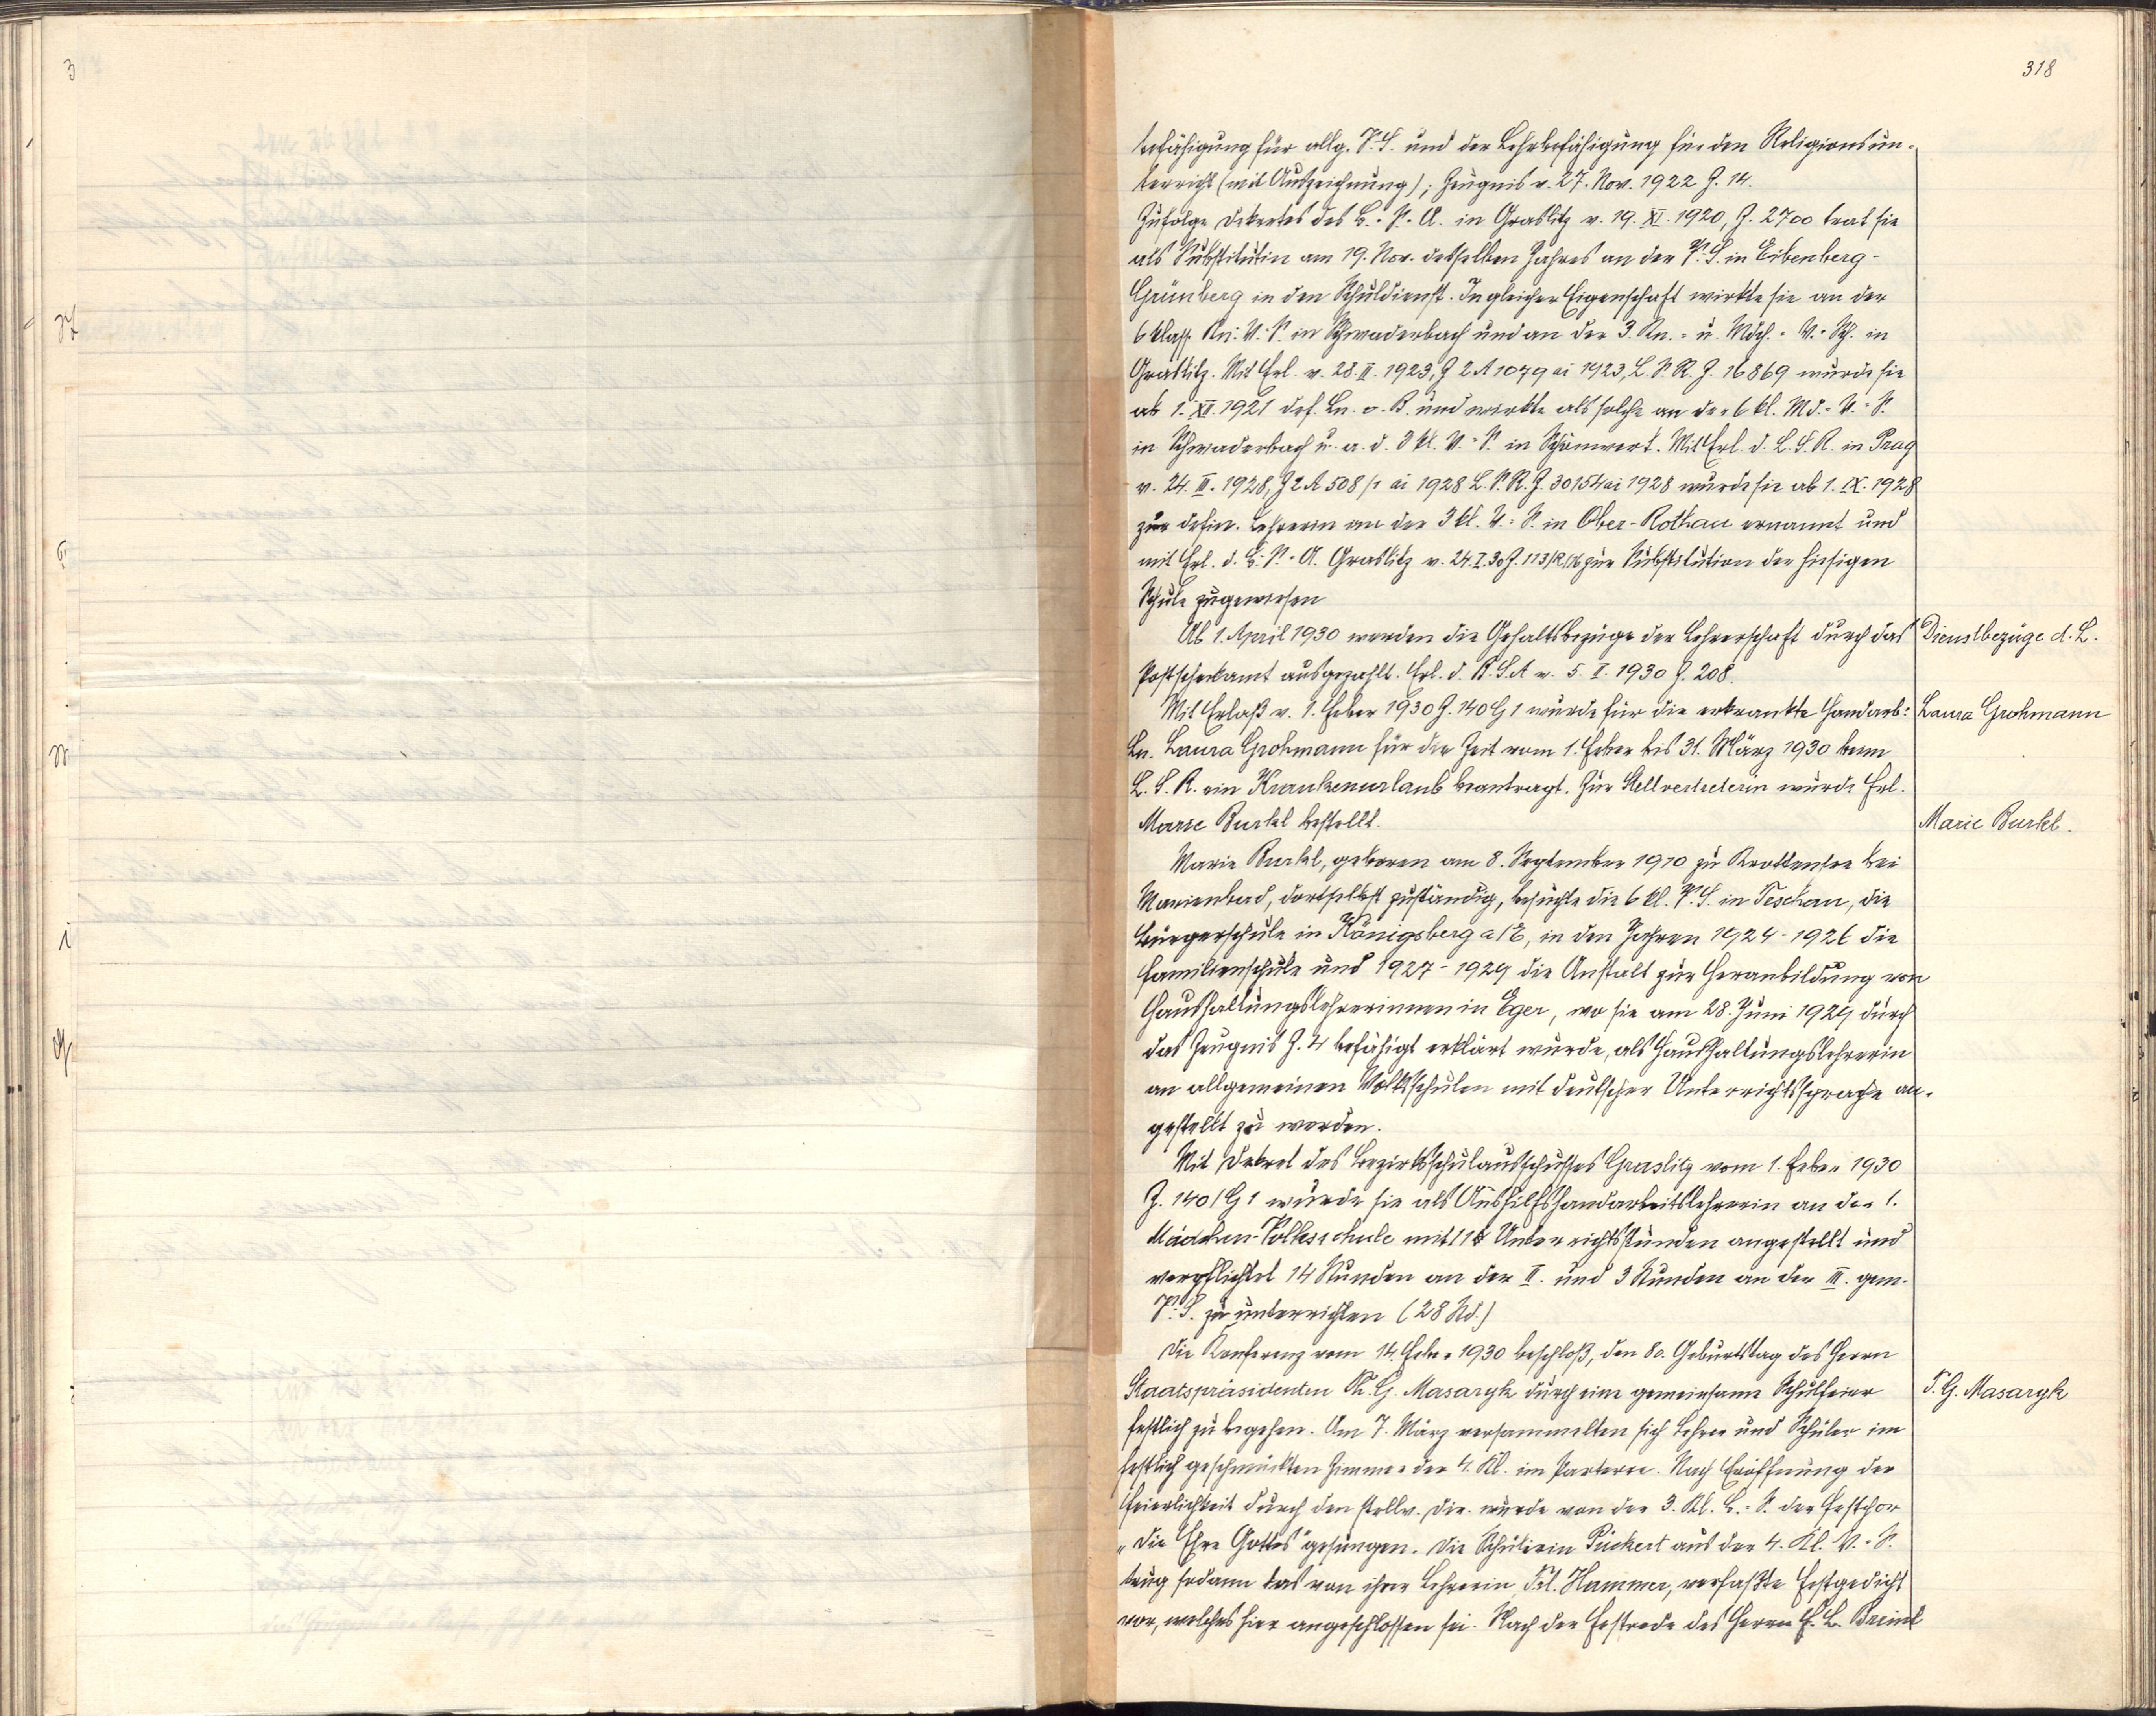 318
befähigung für allg. V. S. und der Lehrbefähigung für den Religionsun-
terricht (mit Auszeichnung); Zeugnis v. 27. Nov. 1922 Z. 14.
Zufolge Dekretes des B.-S.-A. in Graslitz v. 19. XI. 1920, Z. 2700 trat sie
als Substitutin am 19. Nov. desselben Jahres an der V. S. in Eibenberg-
Grünberg in den Schuldienst. In gleicher Eigenschaft wirkte sie an der
6 klass. Kn. V. S. in Schwaderbach und an der 3. Kn.- u. Mdch.- V.- Sch. in
Graslitz. Mit Erl. v. 28. II. 1923, Z 2 A 1079 ai 1923, L. S. R. Z. 16869 wurde sie
ab 1. XII. 1921 def. Ln. o. B. und wirkte als solche an der 6 kl. Md.- V.- S.
in Schwaderbach u. a. d. 3 kl. V.- S. in Schönwert. Mit Erl. d. L. S. R. in Prag
v. 24. III. 1928, Z 2 A 508/1 ai 1928 L. S. R. Z. 30154 ai 1928 wurde sie ab 1. IX. 1928
zur defin. Lehrerin an der 3 kl. V.- S. in Ober-Rothau ernannt und
mit Erl. d. B.- S.- A. Graslitz v. 24. I. 30 Z. 113/R zur Substitution der hiesigen
Schule zugewiesen
Ab 1. April 1930 werden die Gehaltsbezüge der Lehrerschaft durch das
Dienstbezüge d. L.
Postscheckamt ausgezahlt. Erl. d. B. S. A v. 5. I. 1930 Z. 208.
Mit Erlaß v. 1. Feber 1930 Z. 140 G 1 wurde für die erkrankte Handarb.-
Laura Grohmann
Ln. Laura Grohmann für die Zeit vom 1. Feber bis 31. März 1930 beim
L. S. R. ein Krankenurlaub beantragt. Zur Stellvertreterin wurde Frl.
Marie Burkl bestellt.
Marie Burkl.
Marie Burkl, geboren am 8. September 1910 zu Krottensee bei
Marienbad, dortselbst zuständig, besuchte die 6 kl. V. S. in Teschau, die
Bürgerschule in Königsberg a/E, in den Jahren 1924-1926 die
Familienschule und 1927-1929 die Anstalt zur Heranbildung von
Haushaltungslehrerinnen in Eger, wo sie am 28. Juni 1929 durch
das Zeugnis Z. 4 befähigt erklärt wurde, als Haushaltungslehrerin
an allgemeinen Volksschulen mit deutscher Unterrichtssprache an-
gestellt zu werden.
Mit Dekret des Bezirksschulausschusses Graslitz vom 1. Feber 1930
Z. 140/G 1 wurde sie als Aushilfshandarbeitslehrerin an der 1.
Mädchen-Volksschule mit 11 Unterrichtsstunden angestellt und
verpflichtet 14 Stunden an der II. und 3 Stunden an der III. gem.
V. S. zu unterrichten (28 Std.)
Die Konferenz vom 14. Feber 1930 beschloß, den 80. Geburtstag des Herrn
Staatspräsidenten Th. G. Masaryk durch eine gemeinsame Schulfeier
T. G. Masaryk
festlich zu begehen. Am 7. März versammelten sich Lehrer und Schüler im
festlich geschmückten Zimmer der 4. Kl. im Parterre. Nach Eröffnung der
Feierlichkeit durch den stellv. Dir. wurde von der 3. Kl. B.- S. der Festchor
„Die Ehre Gottes" gesungen. Die Schülerin Pückert aus der 4. Kl. V.- S.
trug sodann das von ihrer Lehrerin, Frl. Hammer, verfaßte Festgedicht
vor, welches hier angeschlossen sei. Nach der Festrede des Herrn F. L. Breinl